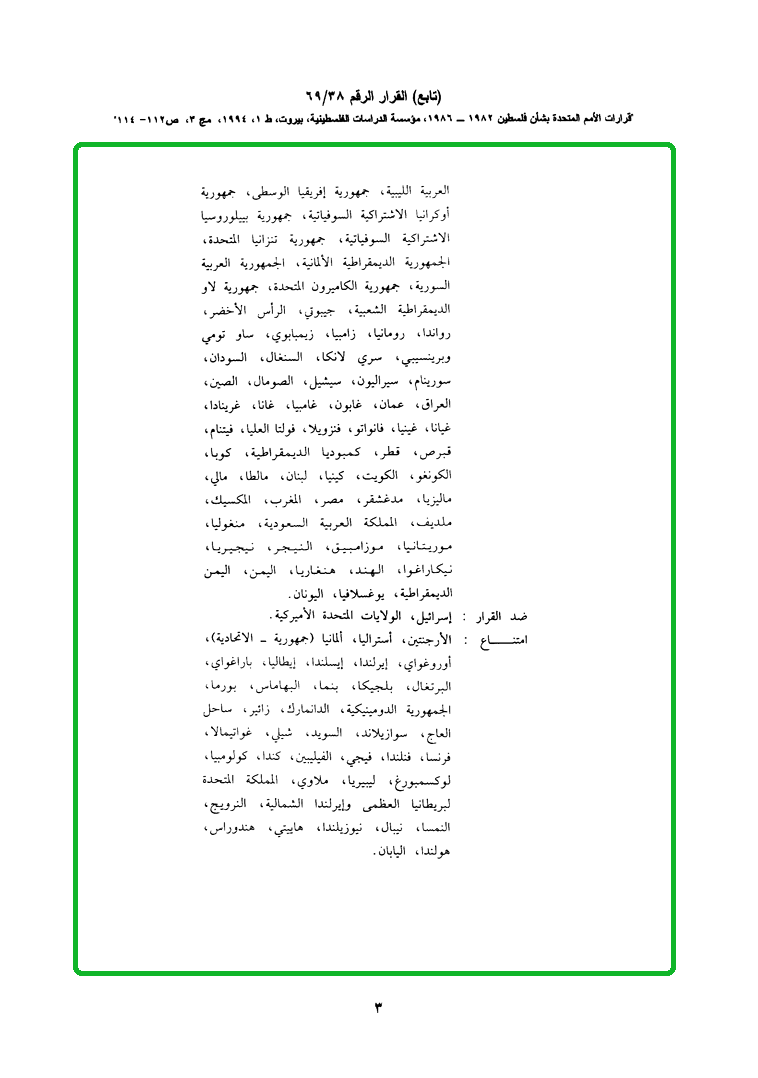 (تابع) القرار الرقم ٦٩/٣٨
"قرارات الأمم المتحدة بشأن فلسطين ١٩٨٢ – ١٩٨٦، مؤسسة الدراسات الفلسطينية، بيروت، ط ١، ١٩٩٤، مج ٣، ص١١٢- ١١٤"
العربية الليبية، جمهورية إفريقيا الوسطى، جمهورية
أوكرانيا الاشتراكية السوفياتية، جمهورية بييلوروسيا
الاشتراكية السوفياتية، جمهورية تنزانيا المتحدة،
الجمهورية الديمقراطية الألمانية، الجمهورية العربية
السورية، جمهورية الكاميرون المتحدة، جمهورية لاو
الديمقراطية الشعبية، جيبوتي، الرأس الأخضر،
رواندا، رومانيا، زامبيا، زيمبابوي، ساو تومي
وبرينسيبي، سري لانكا، السنغال، السودان،
سورينام، سيراليون، سيشيل، الصومال، الصين،
العراق، عمان، غابون، غامبيا، غانا، غرينادا،
غيانا، غينيا، فانواتو، فنزويلا، فولتا العليا، فيتنام،
قبرص، قطر، كمبوديا الديمقراطية، كوبا،
الكونغو، الكويت، كينيا، لبنان، مالطا، مالي،
ماليزيا، مدغشقر، مصر، المغرب، المكسيك،
ملديف، المملكة العربية السعودية، منغوليا،
موريتانيا، موزامبيق، النيجر، نيجيريا،
نيكاراغوا، الهند، هنغاريا، اليمن، اليمن
الديمقراطية، يوغسلافيا، اليونان.
ضد القرار : إسرائيل، الولايات المتحدة الأميركية.
امتنـــــاع : الأرجنتين، أستراليا، ألمانيا (جمهورية – الاتحادية)،
أوروغواي، إيرلندا، إيسلندا، إيطاليا، باراغواي،
البرتغال، بلجيكا، بنما، البهاماس، بورما،
الجمهورية الدومينيكية، الدانمارك، زائير، ساحل
العاج، سوازيلاند، السويد، شيلي، غواتيمالا،
فرنسا، فنلندا، فيجي، الفيليبين، كندا، كولومبيا،
لوكسمبورغ، ليبيريا، ملاوي، المملكة المتحدة
لبريطانيا العظمى وإيرلندا الشمالية، النرويج،
النمسا، نيبال، نيوزيلندا، هاييتي، هندوراس،
هولندا، اليابان.
٣